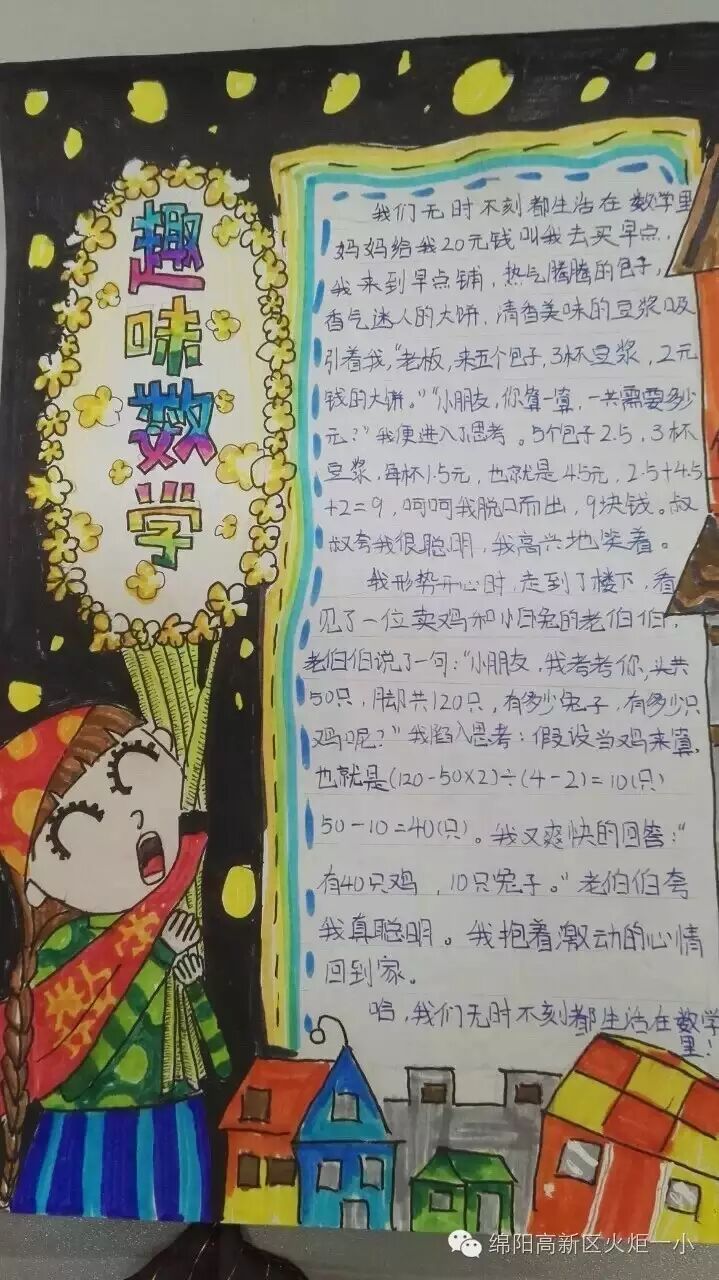 趣味数学
我们无时不刻都生活在数学里
妈妈给我20元钱叫我去买早点,
我来到早点铺,热气腾腾的包子,
香气迷人的大饼,清香美味的豆浆吸
引着我,“老板,来五个包子,3杯豆浆,2元
钱的大饼。”“小朋友,你算一算,一共需要多少
元?”我便进入了思考。5个包子2.5,3杯
豆浆,每杯1.5元,也就是4.5元,2.5+4.5
+2=9,呵呵我脱口而出,9块钱。叔
叔夸我很聪明,我高兴地笑着。
我形势开心时,走到了楼下,看
见了一位卖鸡和小白兔的老伯伯,
老伯伯说了一句:“小朋友,我考考你,头共
50只,脚共120只,有多少兔子,有多少只
鸡呢?”我陷入思考:假设当鸡来算,
也就是(120-50×2)÷(4-2)=10(只)
50-10=40(只)。我又爽快的回答:“
有40只鸡,10只兔子。”老伯伯夸
我真聪明。我抱着激动的心情
回到家。
哈,我们无时不刻都生活在数学
里!
绵阳高新区火炬一小